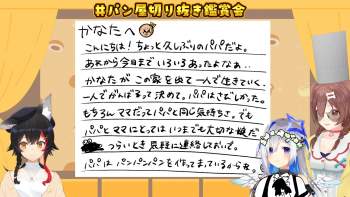 #パン屋切り抜き鑑賞会
かなたへ
こんにちは!ちょっと久しぶりのパパだよ。
あれから今日までいろいろあったよなぁ…
かなたがこの家を出て一人で生きていく、
一人でがんばるって決めて。パパはさびしかった。
もちろんママだってパパと同じ気持ちさ。でも
パパとママにとってはいつまでも大切な娘だ。
つらいとき気軽に連絡しておいで。
パパはパンパンパンを作ってまっているからな。